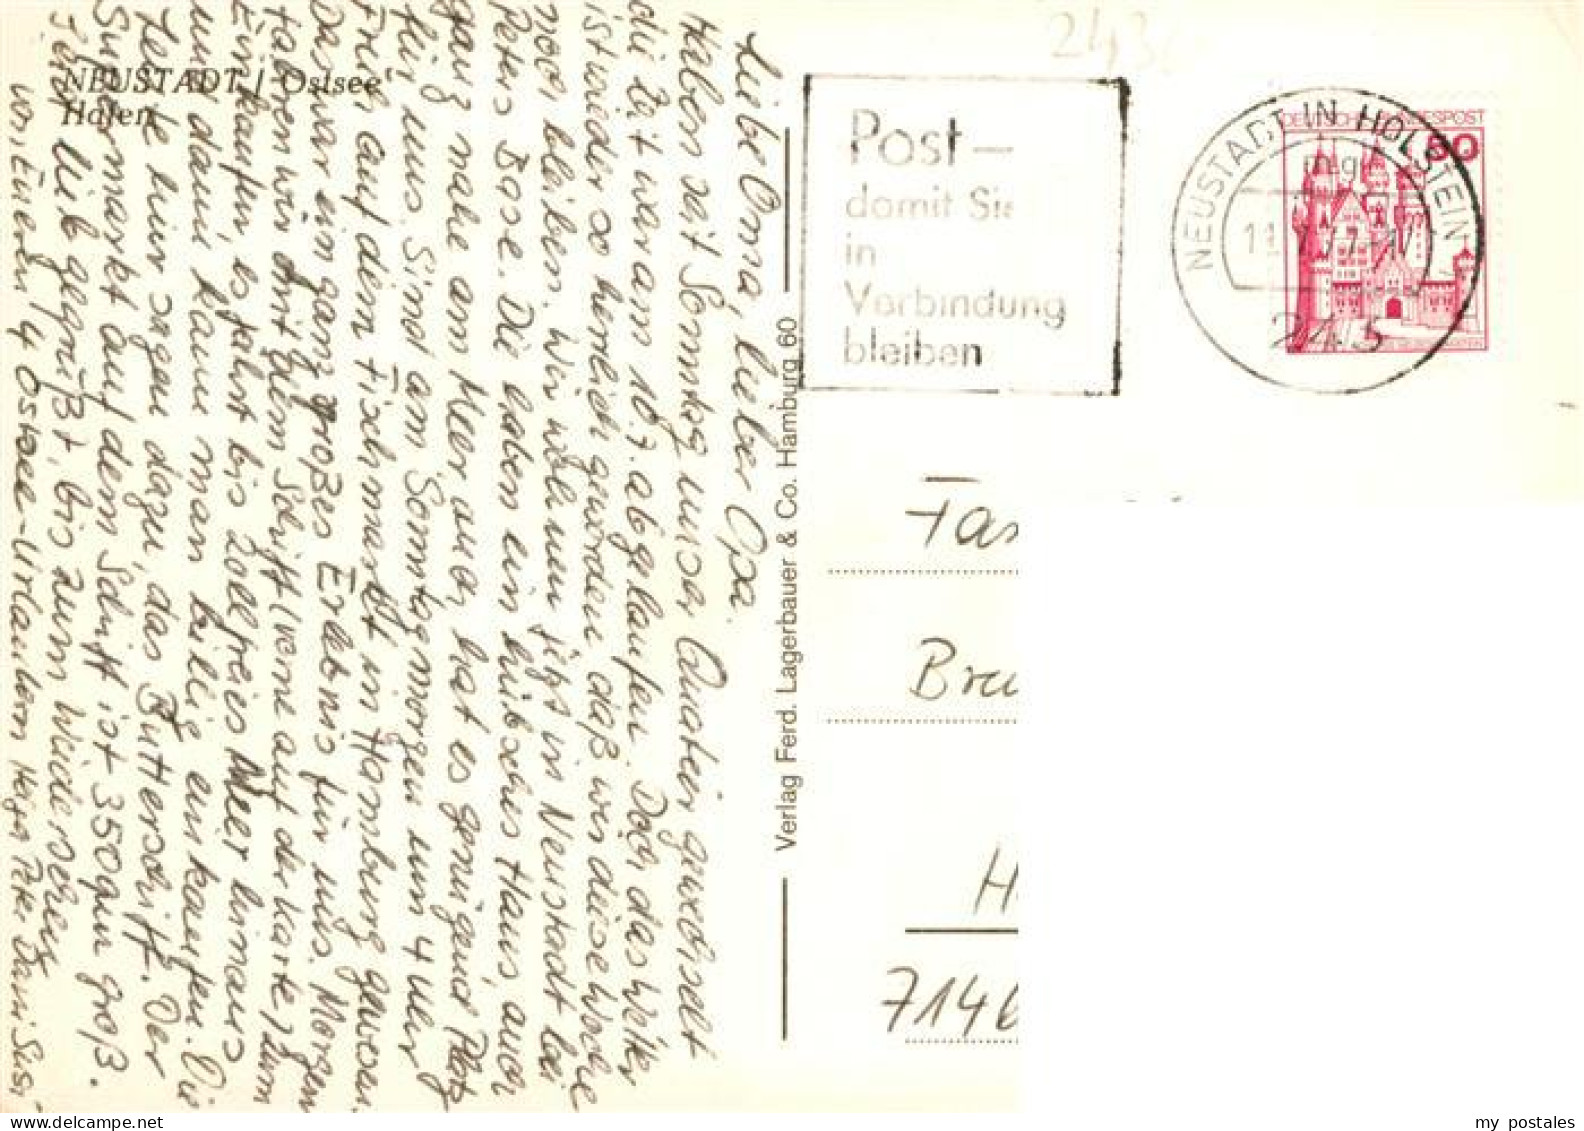 NEUSTADT / Ostsee
Hafen
Liebe Oma, lieber Opa.
Haben seit Sonntag unser Quartier gewechselt
die Zeit war am 10.7. abgelaufen. Doch das Wetter
ist wieder so herrlich geworden, daß wir diese Woche
noch bleiben. Wir wohnen jetzt in Neustadt bei
Peters Base. Die haben ein hübsches Haus, auch
ganz nahe am Meer auch hat es genügend Platz
für uns. Sind am Sonntagmorgen um 4 Uhr
Früh auf dem Fischmarkt in Hamburg gewesen.
Das war ein ganz großes Erlebnis für uns. Morgen
fahren wir mit dem Schiff (vorne auf der Karte) zum
Einkaufen, es fährt bis Zollfreies Meer hinaus
und dann kann man billig einkaufen. Die
Leute hier sagen dazu, das Butterschiff. Der
Supermarkt auf dem Schiff ist 350 qm groß.
Seid lieb gegrüßt, bis zum Wiedersehen
von Euren 4 Ostsee-Urlaubern Helga Peter Dani Susi
Verlag Ferd. Lagerbauer & Co. Hamburg 60
243
Post –
damit Sie
in
Verbindung
bleiben
NEUSTADT IN HOLSTEIN
mg
11.7.77
243
DEUTSCHE BUNDESPOST
50
Fa
Bre
H
7146
my postales